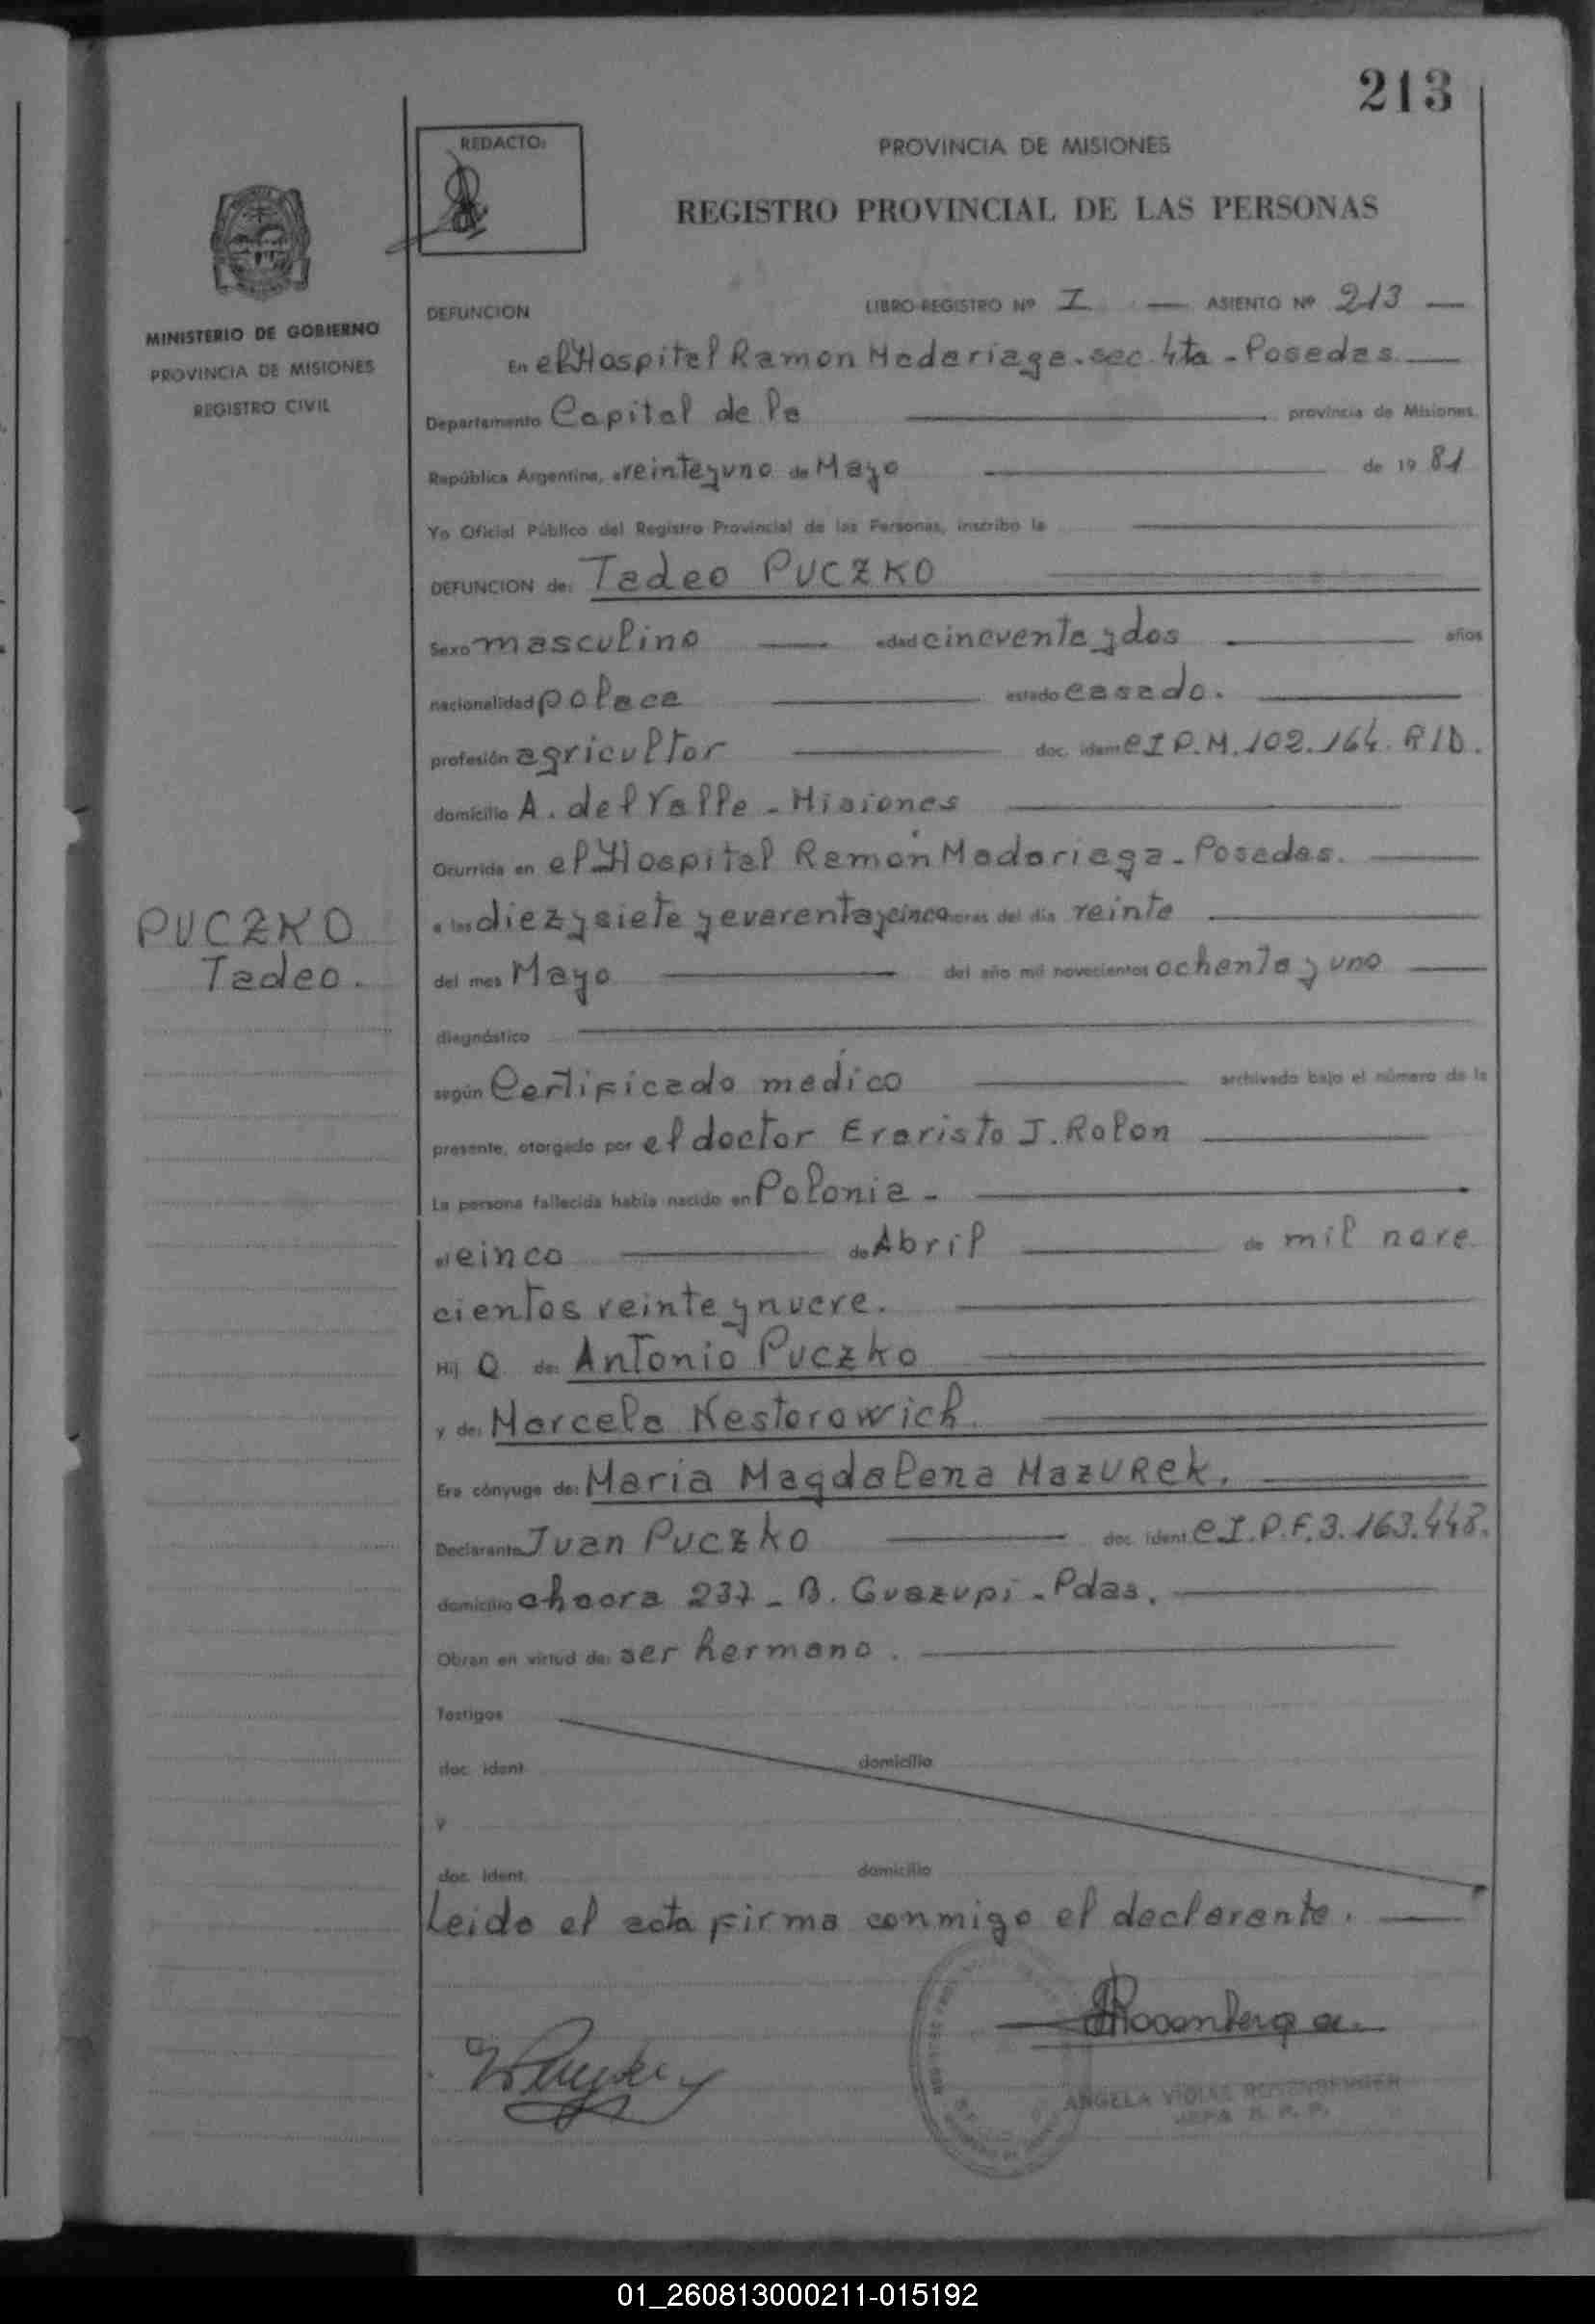 213
REDACTO:
PROVINCIA DE MISIONES
REGISTRO PROVINCIAL DE LAS PERSONAS
MINISTERIO DE GOBIERNO
PROVINCIA DE MISIONES
REGISTRO CIVIL
DEFUNCION LIBRO-REGISTRO Nº I — ASIENTO Nº 213 —
En el Hospital Ramon Madariaga. sec. 4ta - Posadas.
Departamento Capital de la provincia de Misiones.
República Argentina, a veinteyuno de Mayo de 1981
Yo Oficial Público del Registro Provincial de las Personas, inscribo la
DEFUNCION de: Tadeo PUCZKO
Sexo masculino edad cincuenta y dos años
nacionalidad polaca estado casado.
profesión agricultor doc. ident. C I P.M. 102.164. RID.
domicilio A. del Valle - Misiones
Ocurrida en el Hospital Ramón Madariaga - Posadas.
a las diez y siete y cuarenta y cinco horas del día veinte
PUCZKO
Tadeo.
del mes Mayo del año mil novecientos ochenta y uno
diagnóstico
según Certificado médico archivado bajo el número de la
presente, otorgado por el doctor Evaristo J. Rolon
La persona fallecida había nacido en Polonia -
el cinco de Abril de mil nove
cientos veinte y nueve.
Hij o de: Antonio Puczko
y de: Marcela Nesterowich.
Era cónyuge de: Maria Magdalena Mazurek.
Declarante Juan Puczko doc. ident. C.I.P.F. 3.163.448.
domicilio chacra 237 - B. Guazupi - Pdas.
Obran en virtud de: ser hermano.
Testigos
doc. ident. domicilio
y
doc. ident. domicilio
Leida el acta firma conmigo el declarante.
ANGELA VIOLET ROSENBERGER
JEFA R. P. P.
01_260813000211-015192